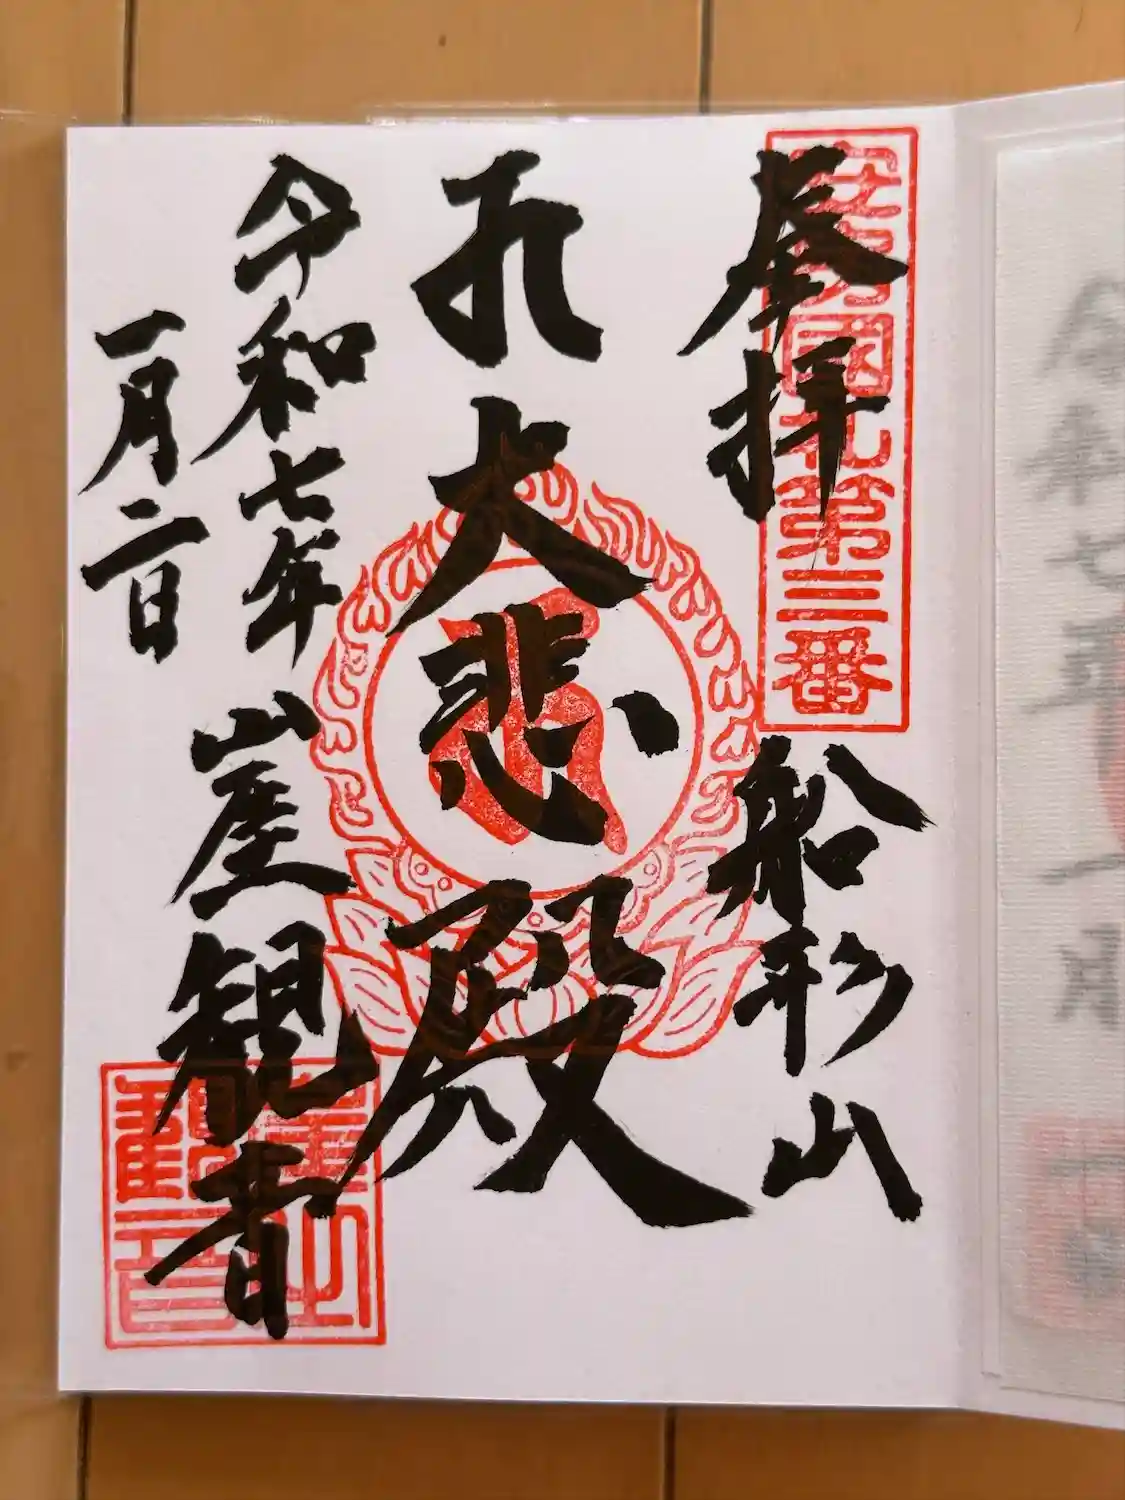 奉拝
安房國札第三番
船形山
大悲殿
令和七年
一月二日
崖観音
崖山観音